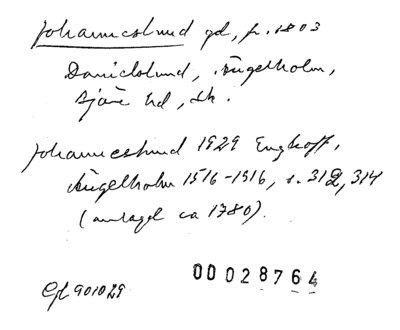 Johanneslund gd, fr. 1803
Danielslund, Ängelholm,
Bjäre hd, Sk.
Johanneslund 1929 Enghoff,
Ängelholm 1516-1916, s. 312, 314
(anlagd ca 1780).
Gf 901029
00028764